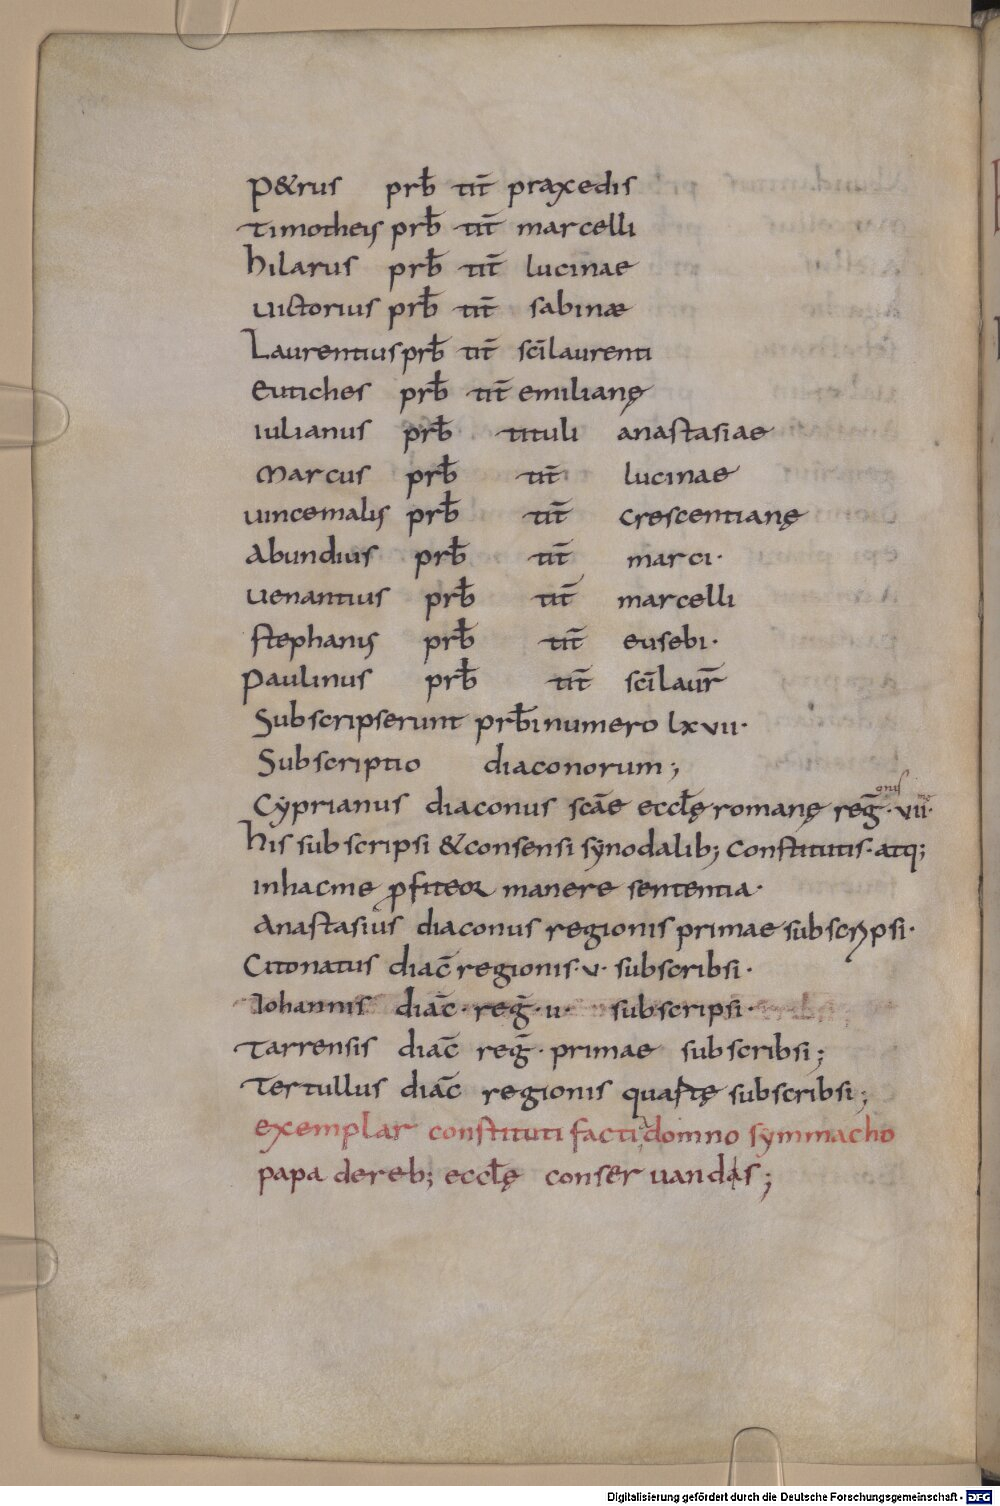 P&rus prb̄ tit̄ praxedis
Timotheus prb̄ tit̄ marcelli
hilarus prb̄ tit̄ lucinae
uictorius prb̄ tit̄ sabinæ
Laurentius prb̄ tit̄ scīlaurenti
eutiches prb̄ tit̄ emilianę
iulianus prb̄ tituli anastasiae
Marcus prb̄ tit̄ lucinae
uincemalis prb̄ tit̄ crescentianę
Abundius prb̄ tit̄ marci·
uenantius prb̄ tit̄ marcelli
stephanus prb̄ tit̄ eusebi·
Paulinus prb̄ tit̄ scīlaur̄
Subscripserunt prb̄i numero lxvii·
Subscriptio diaconorum;
Cyprianus diaconus scāe eccłę romanę reḡ·onis vii·
his subscripsi &consensi synodalib; constitutis· atq;
inhacme ꝓfiteoꝝ manere sententia·
Anastasius diaconus regionis primae subscripsi·
Citonatus diac̄ regionis·v· subscribsi·
Iohannis diac̄· reḡ·ii· subscripsi·
Tarrensis diac̄ reḡ· primae subscribsi;
Tertullus diac̄ regionis quartę subscribsi;
exemplar constituti facti a domno symmacho
papa dereb; eccłę conseruandis;
Digitalisierung gefördert durch die Deutsche Forschungsgemeinschaft - DFG